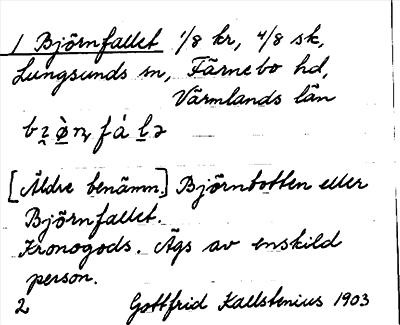 1 Björnfallet 1/8 kr, 4/8 sk,
Lungsunds sn, Färnebo hd,
Värmlands län
[Äldre benämn.] Björnbotten eller
Björnfallet.
Kronogods. Ägs av enskild
person.
2 Gottfrid Kallstenius 1903